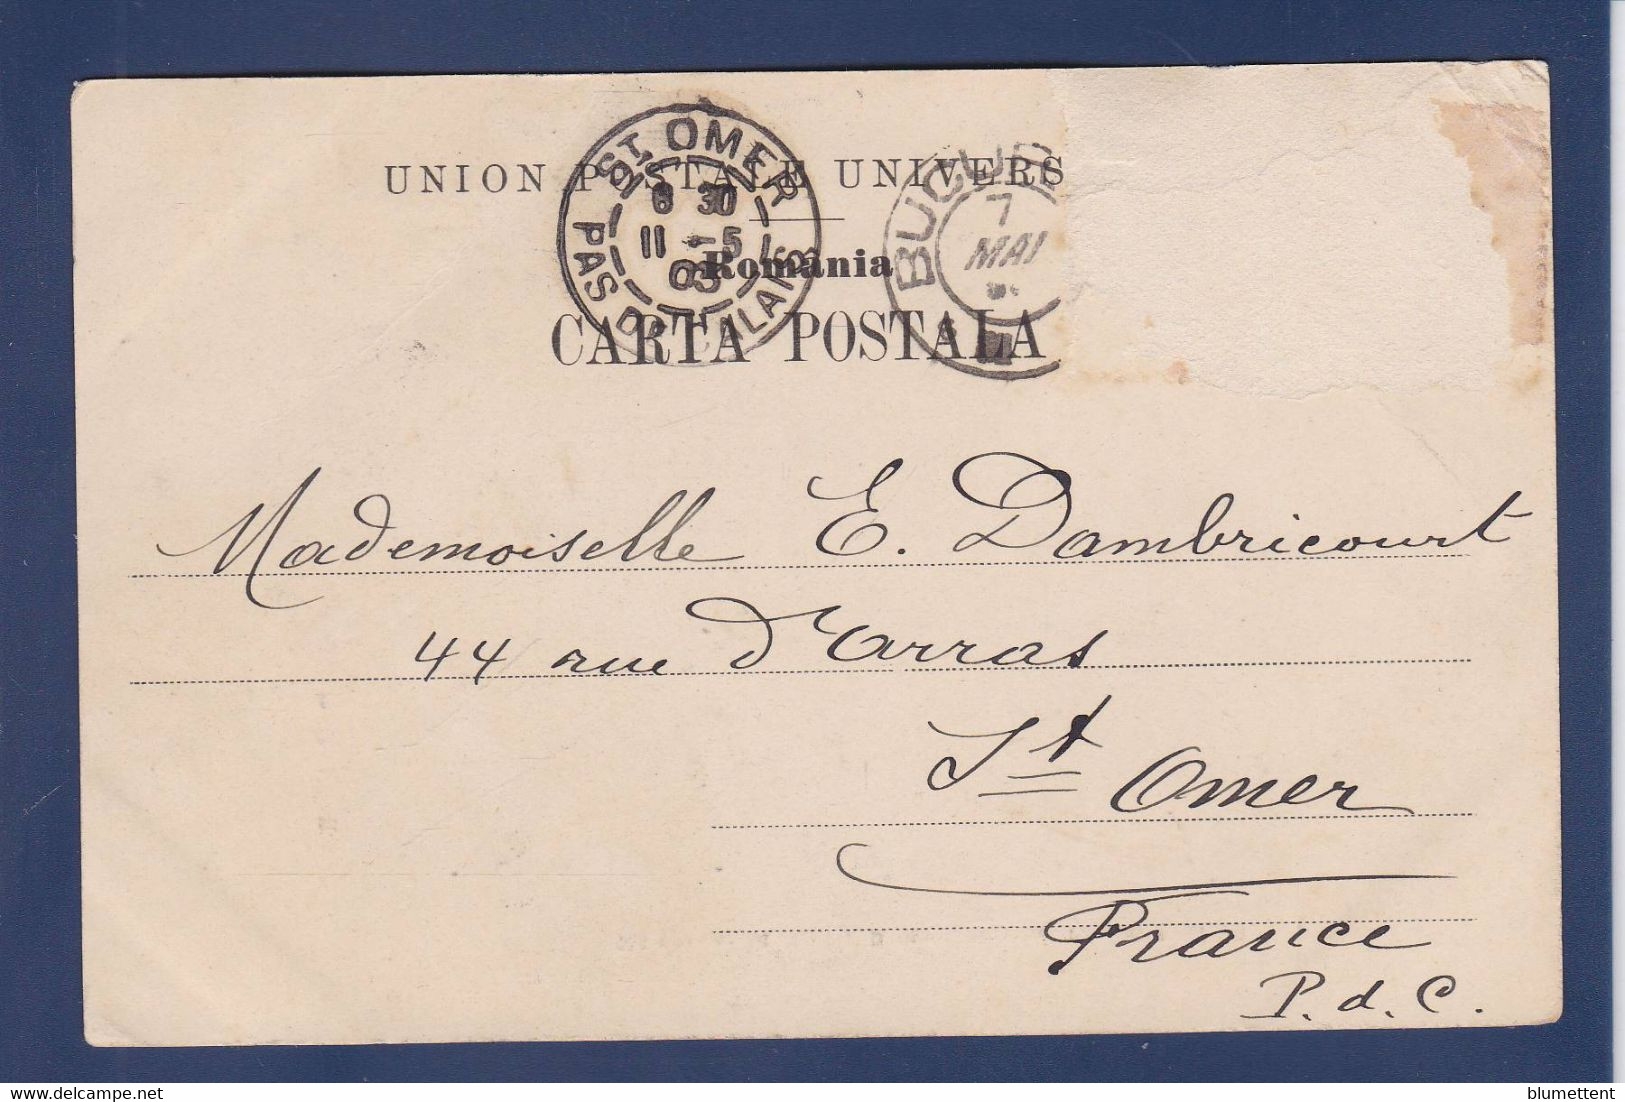 UNION POSTALE UNIVERS
România
CARTA POSTALA
ST OMER
6 30
11 -5
03
PAS DE CALAIS
BUCU
7
MAI
Mademoiselle E. Dambricourt
44 rue d'Arras
St Omer
France
P. d. C.
blumettent